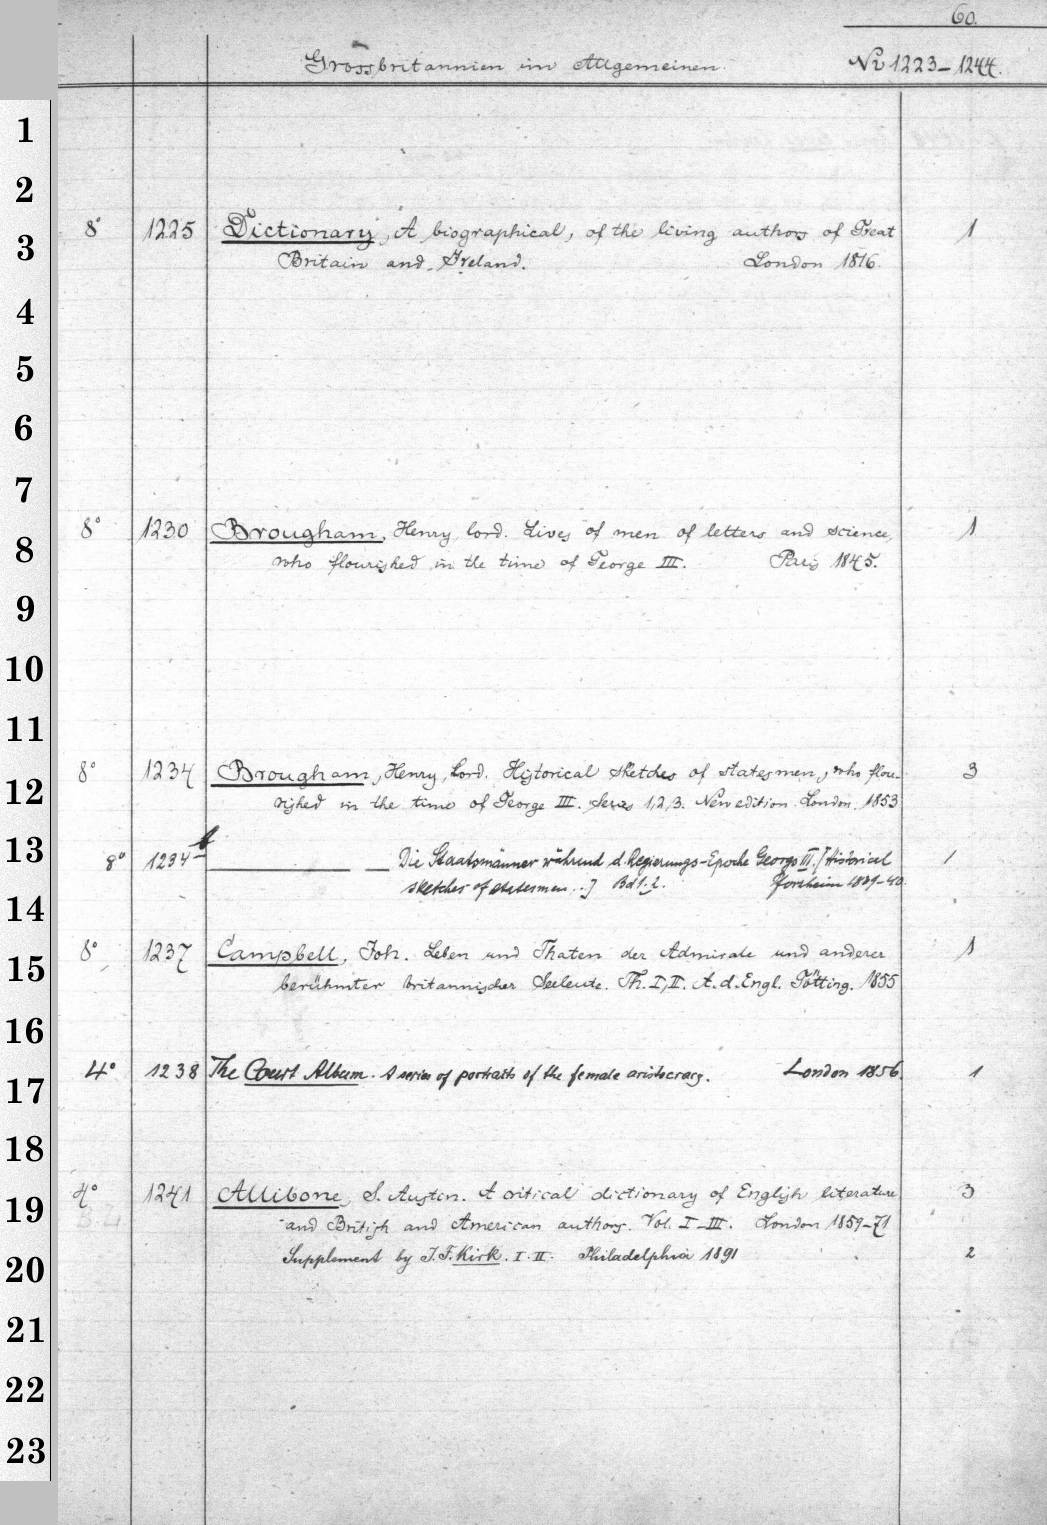 60.
Grossbritannien im Allgemeinen. No 1223-1244.
1
2
8° 1225 Dictionary, A biographical, of the living authors of Great 1
3
Britain and Ireland. London 1816.
4
5
6
7
8° 1230 Brougham, Henry lord. Lives of men of letters and science, 1
8
who flourished in the time of George III. Paris 1845.
9
10
11
8° 1234 Brougham, Henry, Lord. Historical sketches of statesmen, who flou- 3
12
rished in the time of George III. Series 1,2,3. New edition London. 1853
13
8° 1234 b — Die Staatsmänner während d. Regierungs-Epoche Georgs III. [Historical 1
sketches of statesmen...] Bd 1.2. Pforzheim 1839-40.
14
8° 1237 Campbell, Joh. Leben und Thaten der Admirale und anderer 1
15
berühmter britannischer Seeleute. Th. I, II. A. d. Engl. Götting. 1755
16
4° 1238 The Court Album. A series of portraits of the female aristocracy. London 1856. 1
17
18
4° 1241 Allibone, S. Austin. A critical dictionary of English literature 3
19
and British and American authors. Vol. I-III. London 1859-71
Supplement by J. F. Kirk. I. II. Philadelphia 1891 2
20
21
22
23